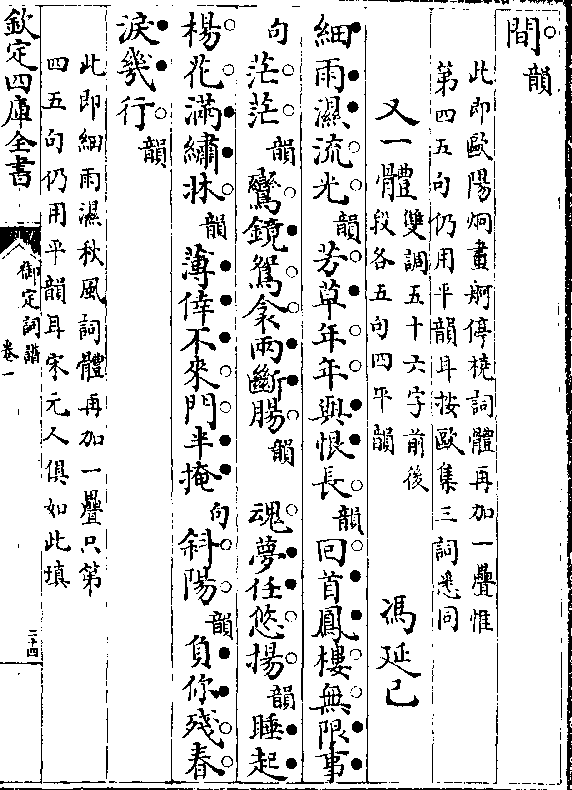 間韻
此即歐陽炯畫舸停橈詞體再加一疊惟
第四五句仍用平韻耳按歐集三詞悉同
又一體 雙調五十六字前後
段各五句四平韻 馮延已
細雨濕流光韻芳草年年與恨長韻回首鳳樓無限事
句茫茫韻鸞鏡鴛衾兩斷腸韻 魂夢任悠揚韻睡起
楊花滿繡牀韻薄倖不來門半掩句斜陽韻負你殘春
淚幾行韻
此即細雨濕秋風詞體再加一疊只第
四五句仍用平韻耳宋元人俱如此填
欽定四庫全書
御定詞譜
卷一
二十四